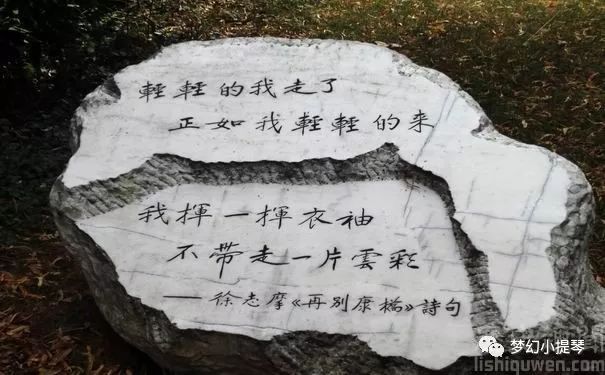 輕輕的我走了
正如我輕輕的来
我揮一揮衣袖
不带走一片雲彩
——徐志摩《再别康橋》詩句
梦幻小提琴
lishiquwen.com